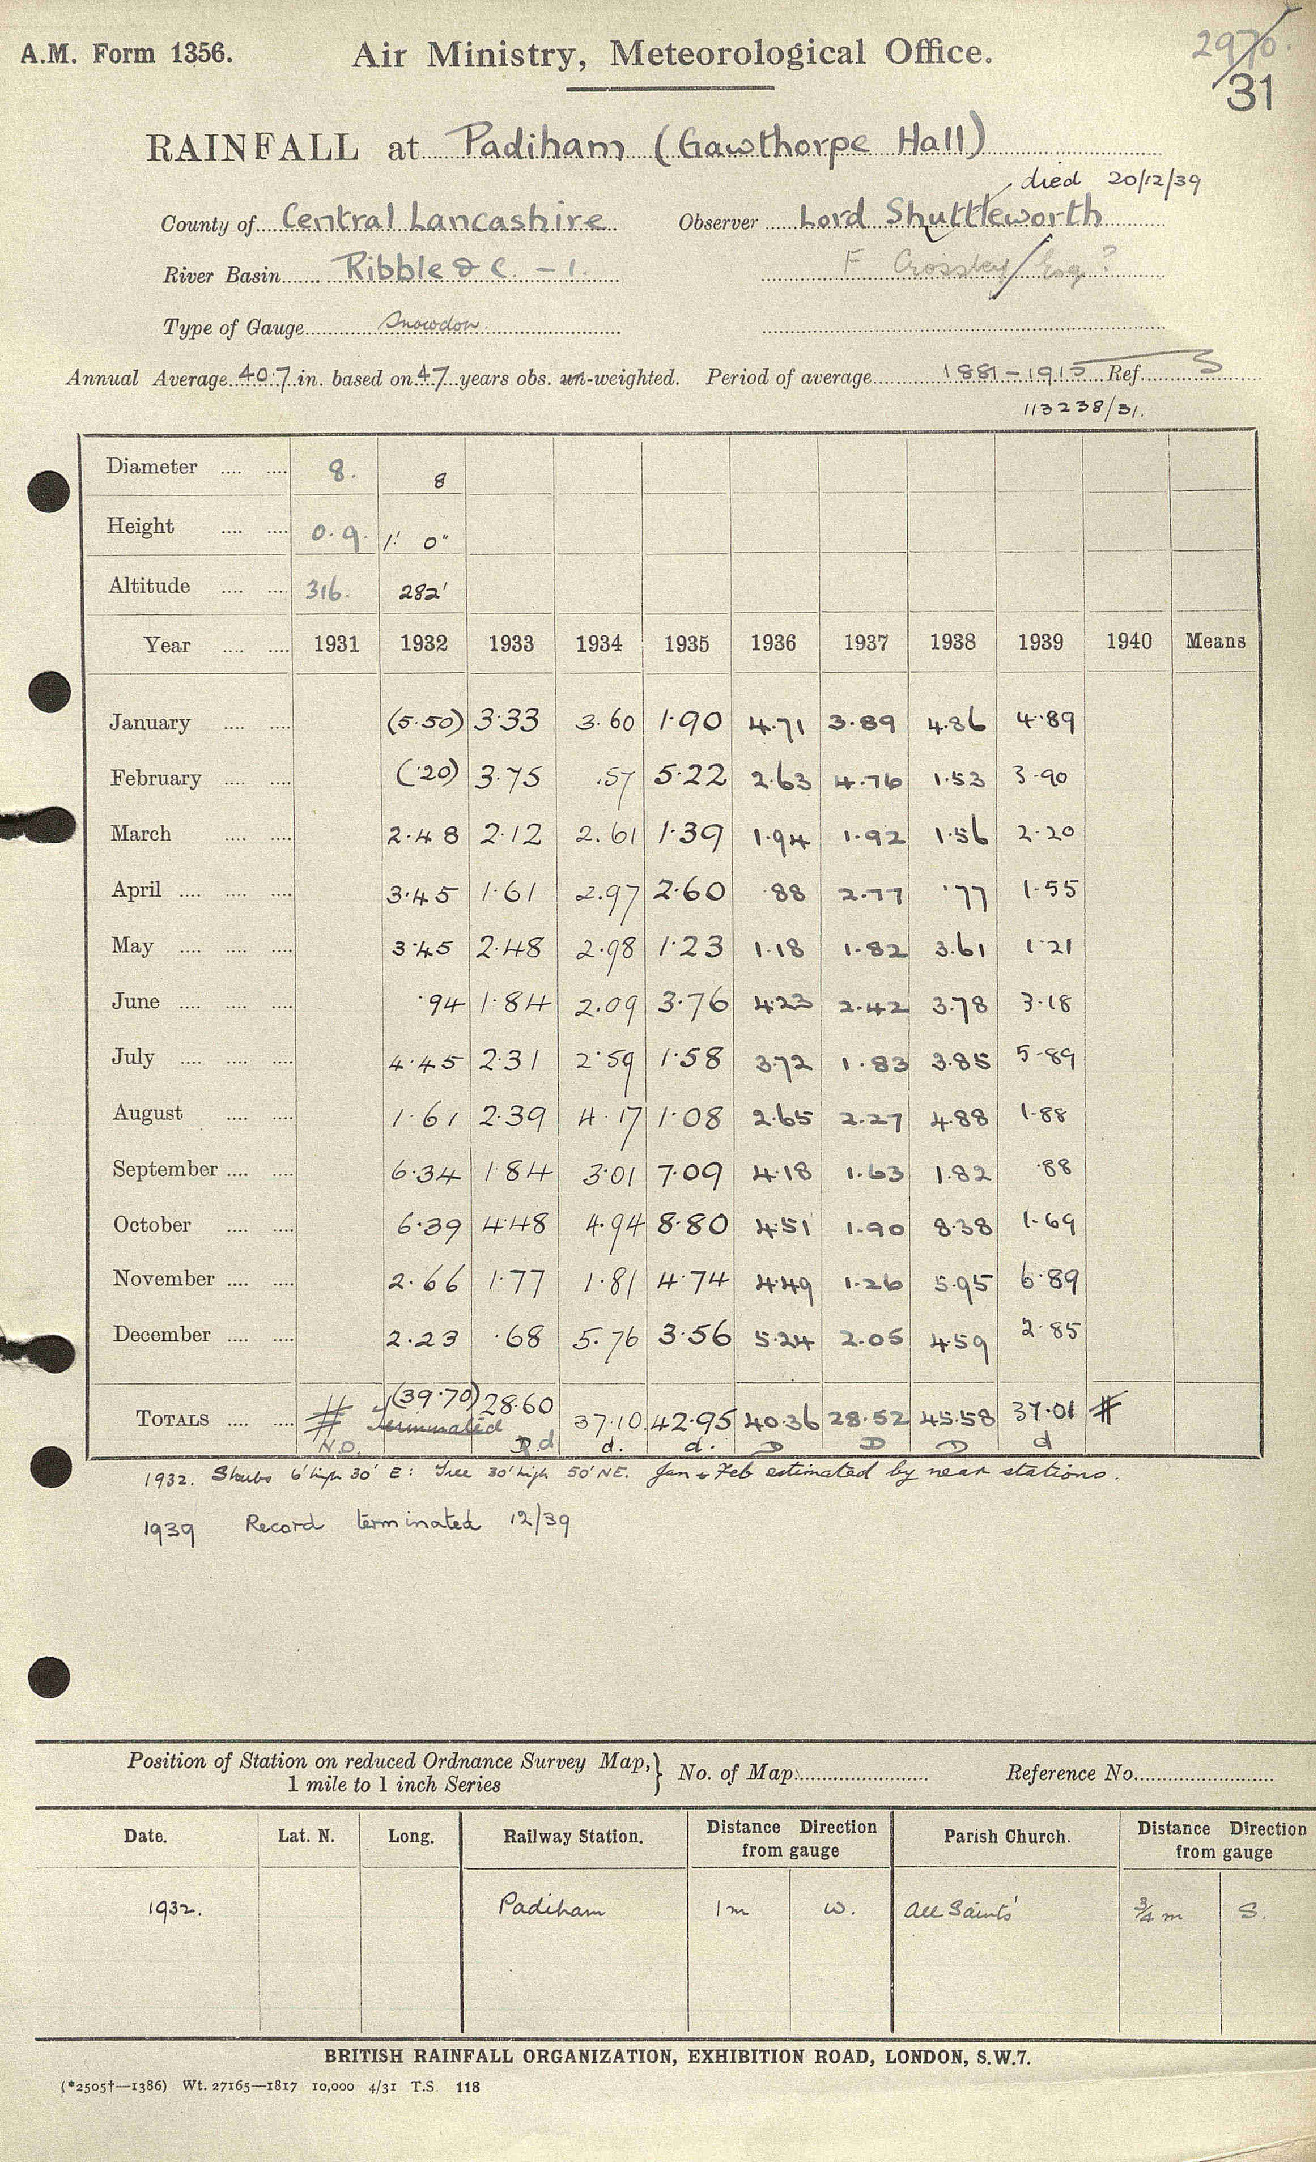 A.M. Form 1356.
Air Ministry, Meteorological Office.
2970.
31
RAINFALL at Padiham (Gawthorpe Hall)
died 20/12/39
County of Central Lancashire Observer Lord Shuttleworth
River Basin Ribble & C. - 1. F Crossley Esq ?
Type of Gauge Snowdon
Annual Average 40.7 in. based on 47 years obs. un-weighted. Period of average 1881-1915 Ref. 3
113238/31.
Diameter 8. 8
Height 0.9. 1' 0"
Altitude 316. 282'
Year 1931 1932 1933 1934 1935 1936 1937 1938 1939 1940 Means
January (5.50) 3.33 3.60 1.90 4.71 3.89 4.86 4.89
February (.20) 3.75 .57 5.22 2.63 4.76 1.53 3.90
March 2.48 2.12 2.61 1.39 1.94 1.92 1.56 2.20
April 3.45 1.61 2.97 2.60 .88 2.77 .77 1.55
May 3.45 2.48 2.98 1.23 1.18 1.82 3.61 1.21
June .94 1.84 2.09 3.76 4.23 2.42 3.78 3.18
July 4.45 2.31 2.59 1.58 3.72 1.83 3.85 5.89
August 1.61 2.39 4.17 1.08 2.65 2.27 4.88 1.88
September 6.34 1.84 3.01 7.09 4.18 1.63 1.82 .88
October 6.39 4.48 4.94 8.80 4.51 1.90 8.38 1.69
November 2.66 1.77 1.81 4.74 4.49 1.26 5.95 6.89
December 2.23 .68 5.76 3.56 5.24 2.05 4.59 2.85
TOTALS # (39.70) 28.60 37.10 42.95 40.36 28.52 45.58 37.01 #
terminated
N.D. D d d. d. D D D d
1932. Shrubs 6' high 30' E: Tree 30' high 50' NE. Jan & Feb estimated by near stations.
1939 Record terminated 12/39
Position of Station on reduced Ordnance Survey Map, } No. of Map Reference No.
1 mile to 1 inch Series
Date. Lat. N. Long. Railway Station. Distance Direction from gauge Parish Church. Distance Direction from gauge
1932. Padiham 1 m W. All Saints' 3/4 m S.
BRITISH RAINFALL ORGANIZATION, EXHIBITION ROAD, LONDON, S.W.7.
(*2505†—1386) Wt. 27165—1817 10,000 4/31 T.S. 118